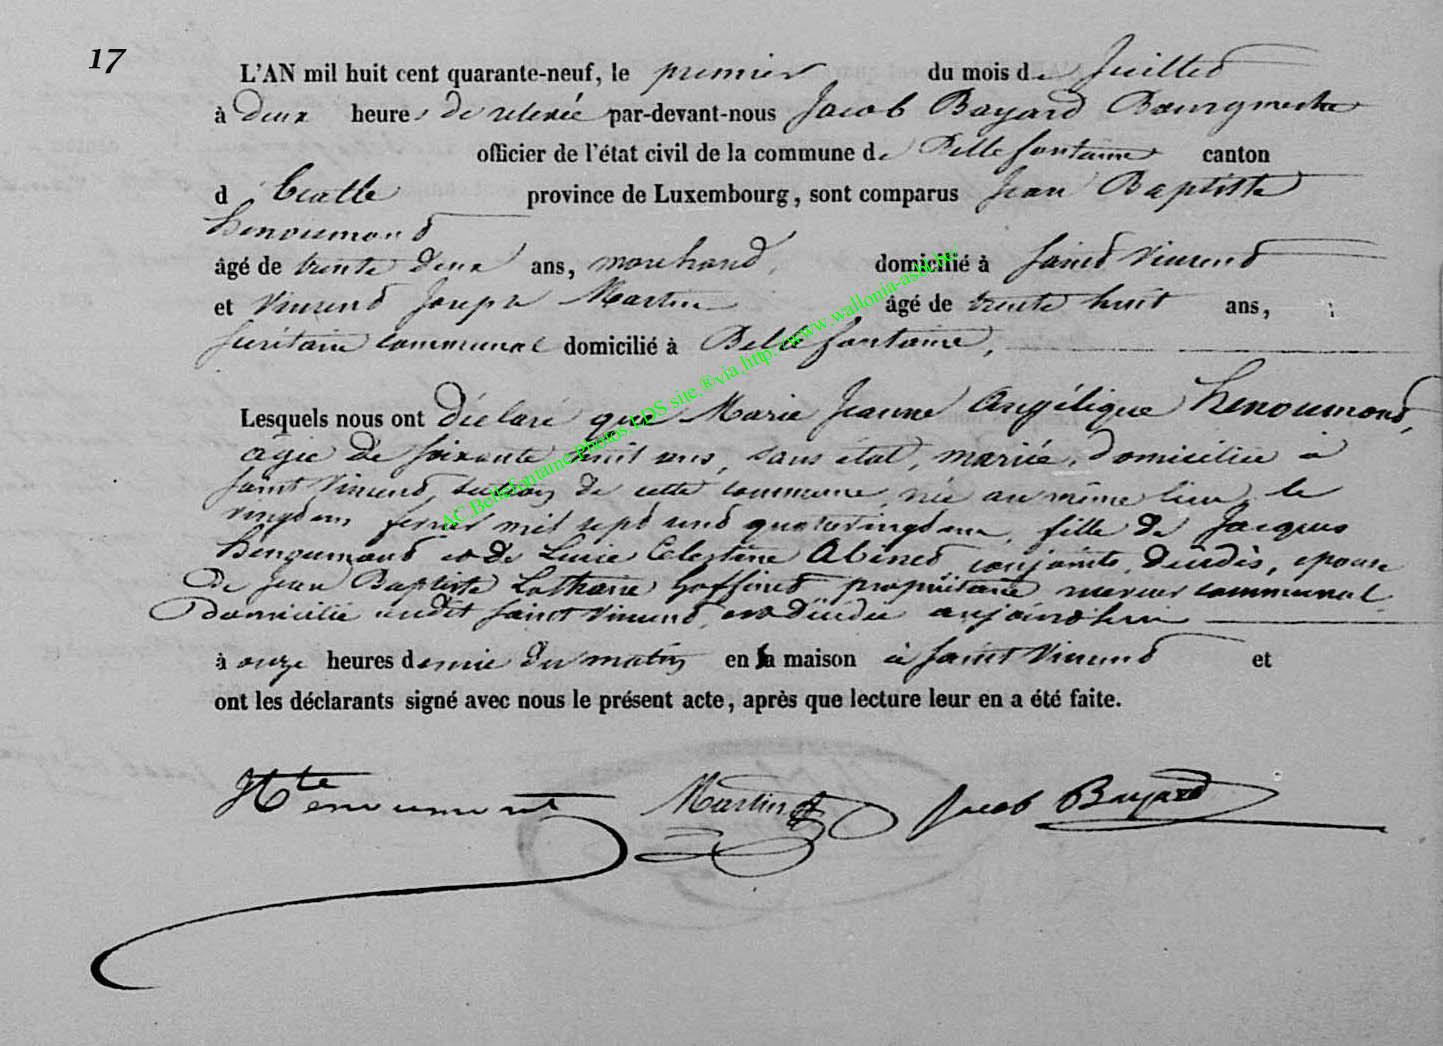 17
L'AN mil huit cent quarante-neuf, le premier du mois de Juillet
à deux heures de relevée par-devant-nous Jacob Bayard Bourgmestre
officier de l'état civil de la commune de Bellefontaine canton
d' Etalle province de Luxembourg, sont comparus Jean Baptiste
Henoumond
âgé de trente deux ans, marchand, domicilié à Saint Vincend
et Vincend Joseph Martin âgé de trente huit ans,
Secrétaire communal domicilié à Bellefontaine,
Lesquels nous ont déclaré que Marie Jeanne Angélique Henoumond,
agée de soixante huit ans, sans état, mariée, domiciliée à
Saint Vincend, section de cette commune, née au même lieu, le
fevrier mil sept cend, fille de Jacques
Henoumond et de Lucie Celestine Abined, conjoints, décédés, epouse
de Jean Baptiste Lothaire Goffined propriétaire receveur communal
domicilié audit Saint Vincend, est décédée aujourd'hui
à onze heures demie du matin en sa maison à Saint Vincend et
ont les déclarants signé avec nous le présent acte, après que lecture leur en a été faite.
Hte enoumont Martin Jacob Bayard
AC.Bellefontaine Photos LDS site ®via http://www.wallonia-asbl.be/